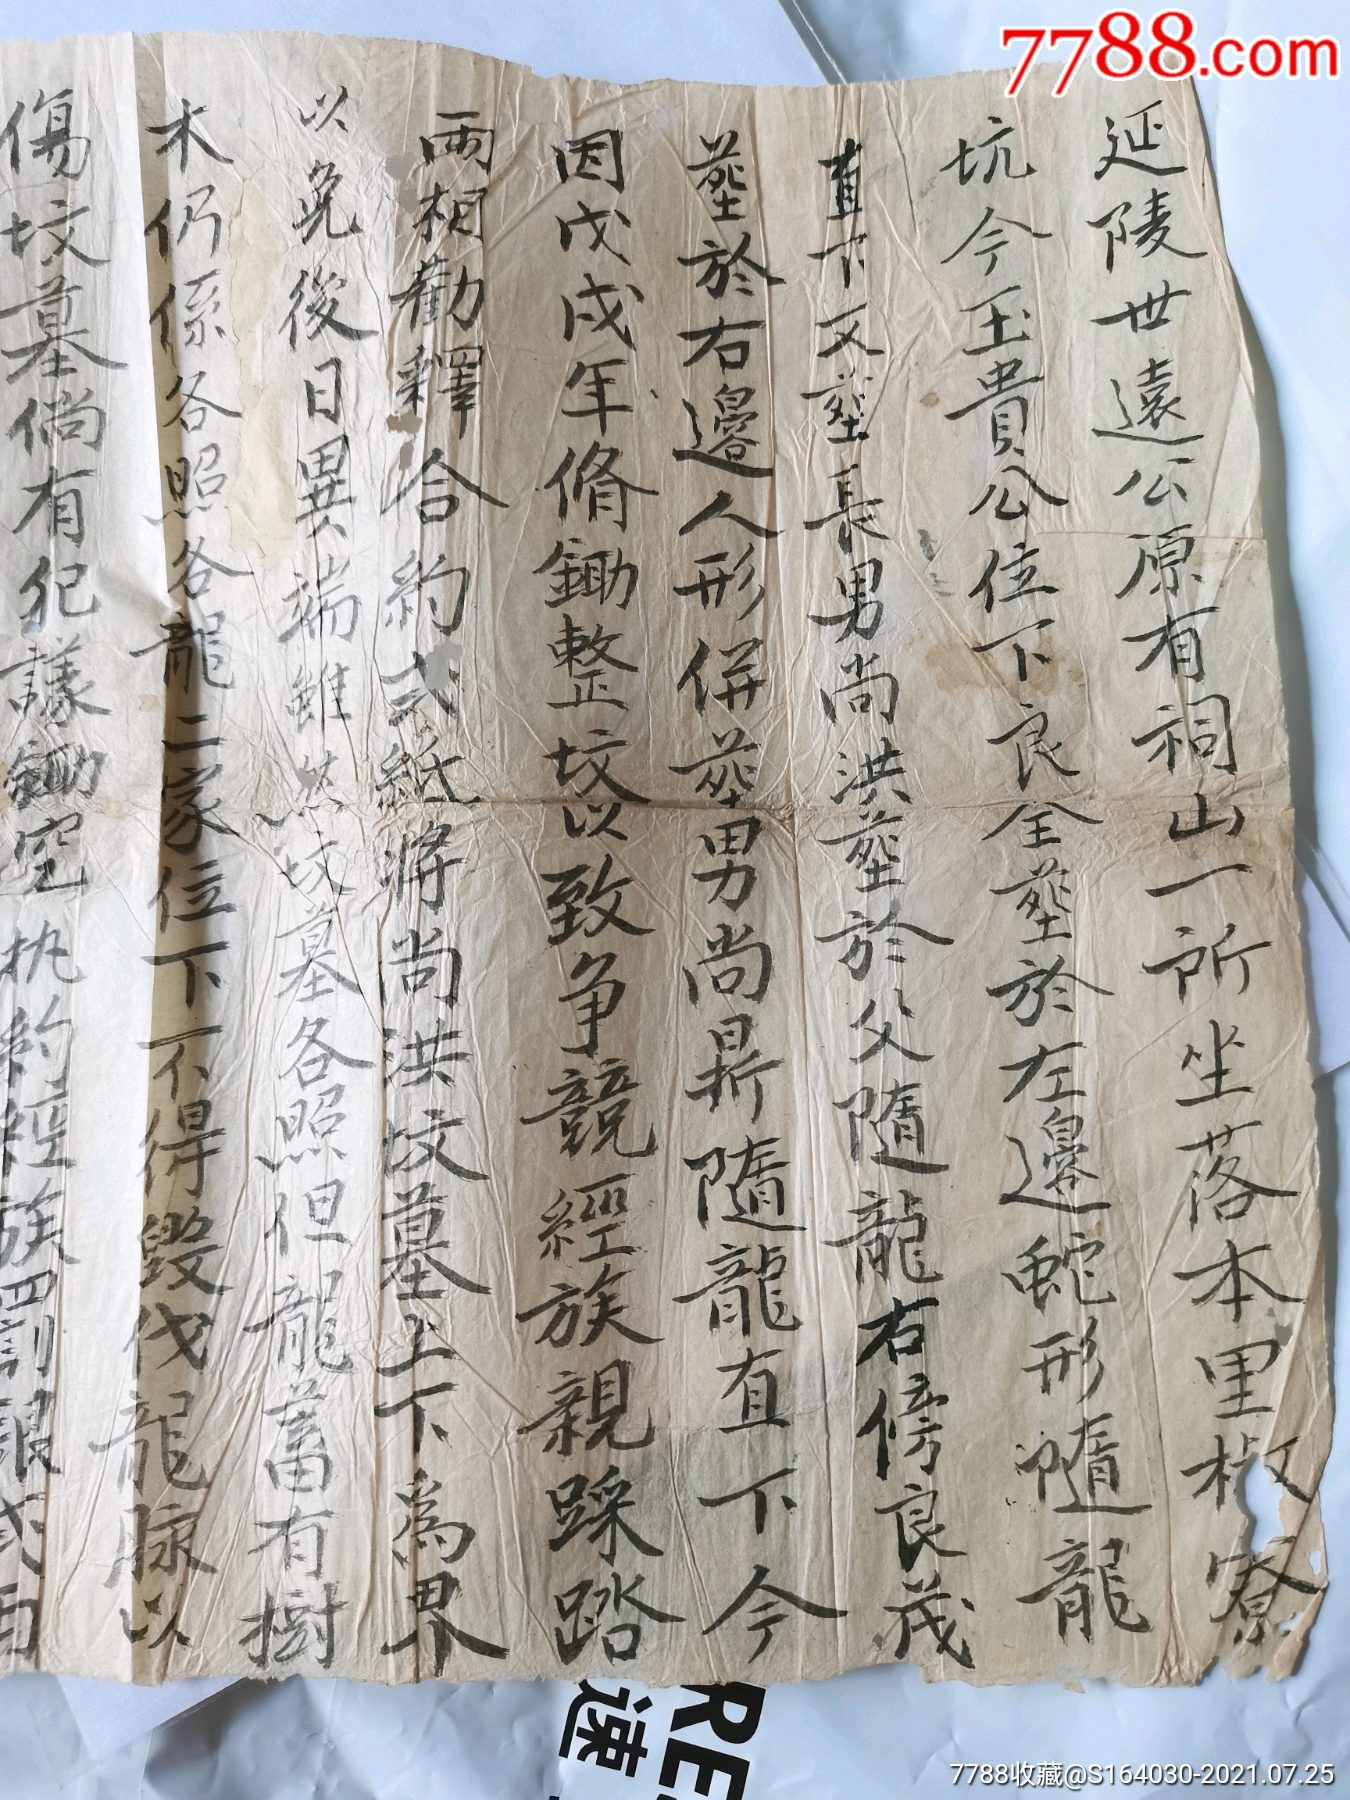 7788.com
延陵世遠公原有祠山一所坐落本里椒寮
坑今玉貴公位下良全塟於左邊蛇形隨龍
直下又塟長男尚洪塟於父隨龍右傍良茂
塟於右邊人形併塟男尚昇隨龍直下今
因戊戌年脩鋤整坟以致争競經族親踩踏
兩相勸釋合約弍紙將尚洪坟墓上下為界
以免後日異端雖然坟墓各照但龍蓄有樹
木仍係各照各龍二家位下不得毀伐龍脉以
傷坟墓倘有犯議鋤空执約經族罰銀弍両
RE
速
7788收藏@S164030-2021.07.25